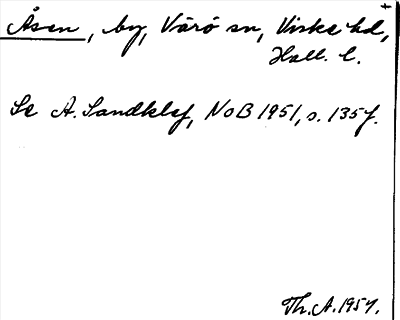 Åsen, by, Värö sn, Viske hd,
Hall. l.
Se A. Sandklef, NoB 1951, s. 135f.
Th. A. 1957.